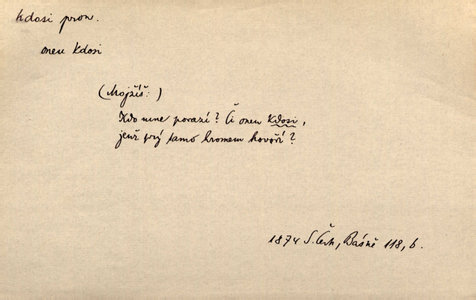 kdosi pron.
onen Kdosi
(Mojžíš:)
Kdo mne porazí? Či onen Kdosi,
jenž prý tamo hromem hovoří?
1874 S. Čech, Básně 118, b.